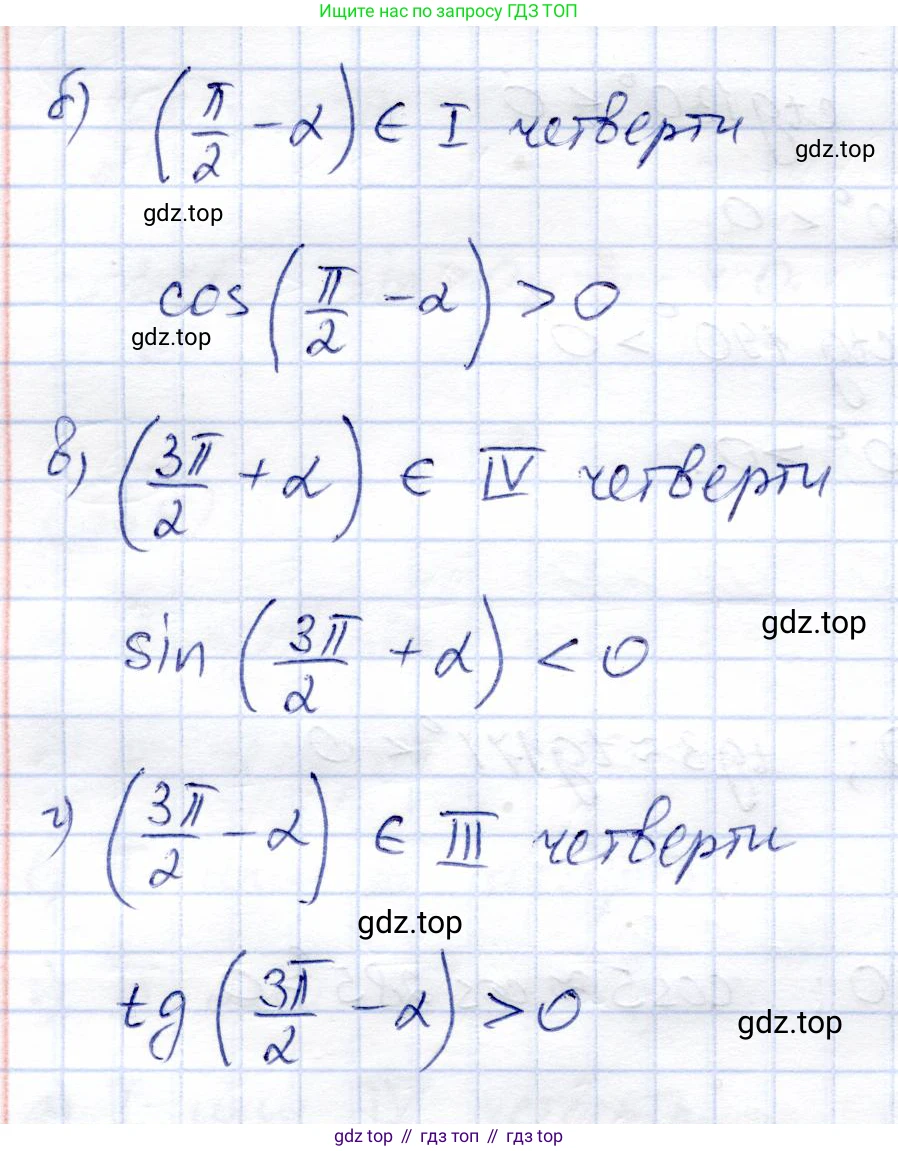 Ищите нас по запросу ГДЗ ТОП
б) (π/2 - α) ∈ I четверти
gdz.top
gdz.top
cos(π/2 - α) > 0
gdz.top
в) (3π/2 + α) ∈ IV четверти
sin(3π/2 + α) < 0
gdz.top
г) (3π/2 - α) ∈ III четверти
gdz.top
tg(3π/2 - α) > 0
gdz.top
gdz top // гдз топ // gdz top